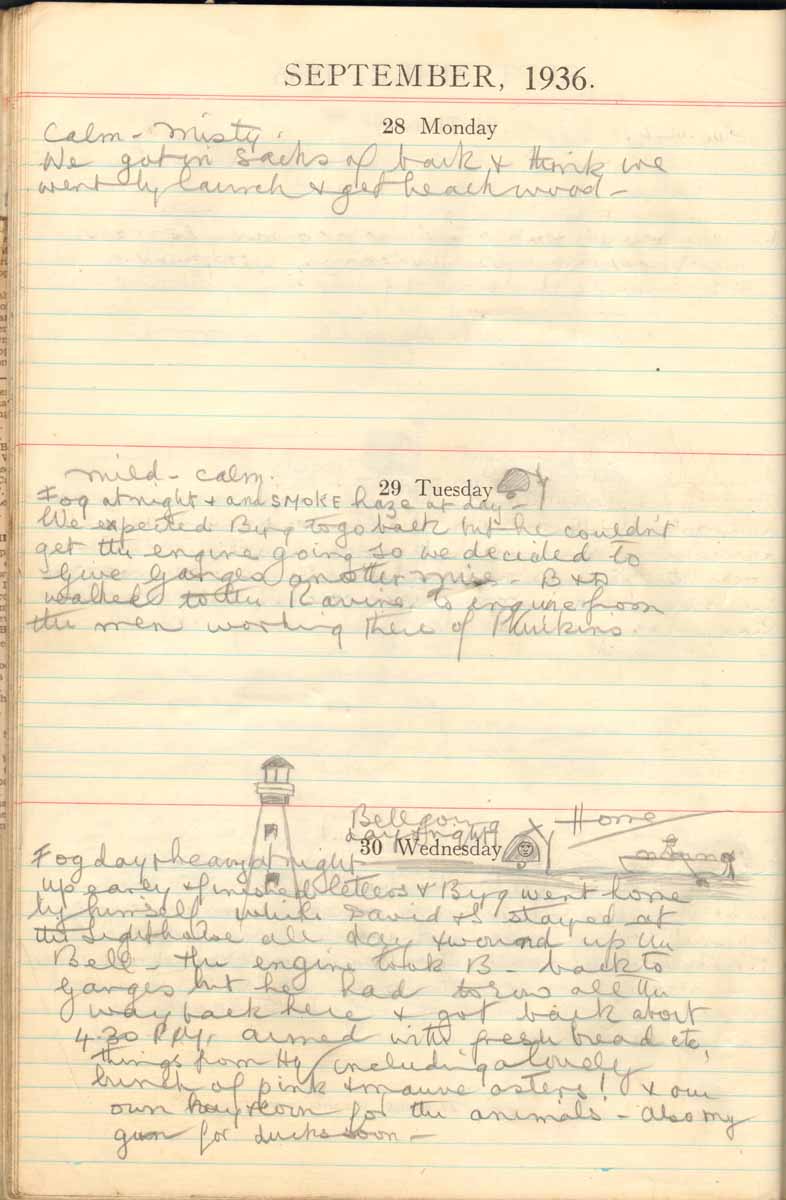 SEPTEMBER, 1936.
28 Monday
Calm - Misty.
We got in sacks of bark & think we
went by launch & get beach wood -
29 Tuesday
mild - calm.
Fog at night & and SMOKE haze at day -
We expected Byrg to go back but he couldn't
get the engine going so we decided to
Give Ganges another miss - B & D
walked to the Ravine to inquire from
the men working there of
Bell going
day & night
Home
30 Wednesday
Fog day & heavy at night
up early & finished letters & Byrg went home
by himself while David & I stayed at
the Lighthouse all day & wound up the
Bell - the engine took B - back to
Ganges but he had to row all the
way back here & got back about
4.30 P.M, armed with fresh bread etc,
things from Hq including a lovely
bunch of pink & mauve asters! & our
own hay & corn for the animals - also my
gun for ducks soon -